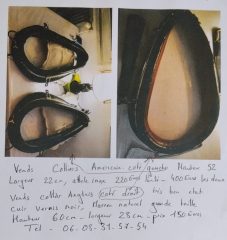 Vends Colliers Américain côté gauche Hauteur 52
Largeur 22cm, attelle inox 400 Euros les deux
Vends collier Anglais (coté droit) très bon état
cuir vernis noir, Marron naturel grande taille
Hauteur 60cm - largeur 28cm - prix 180 Euros
Tel - 06-08-31-57-54